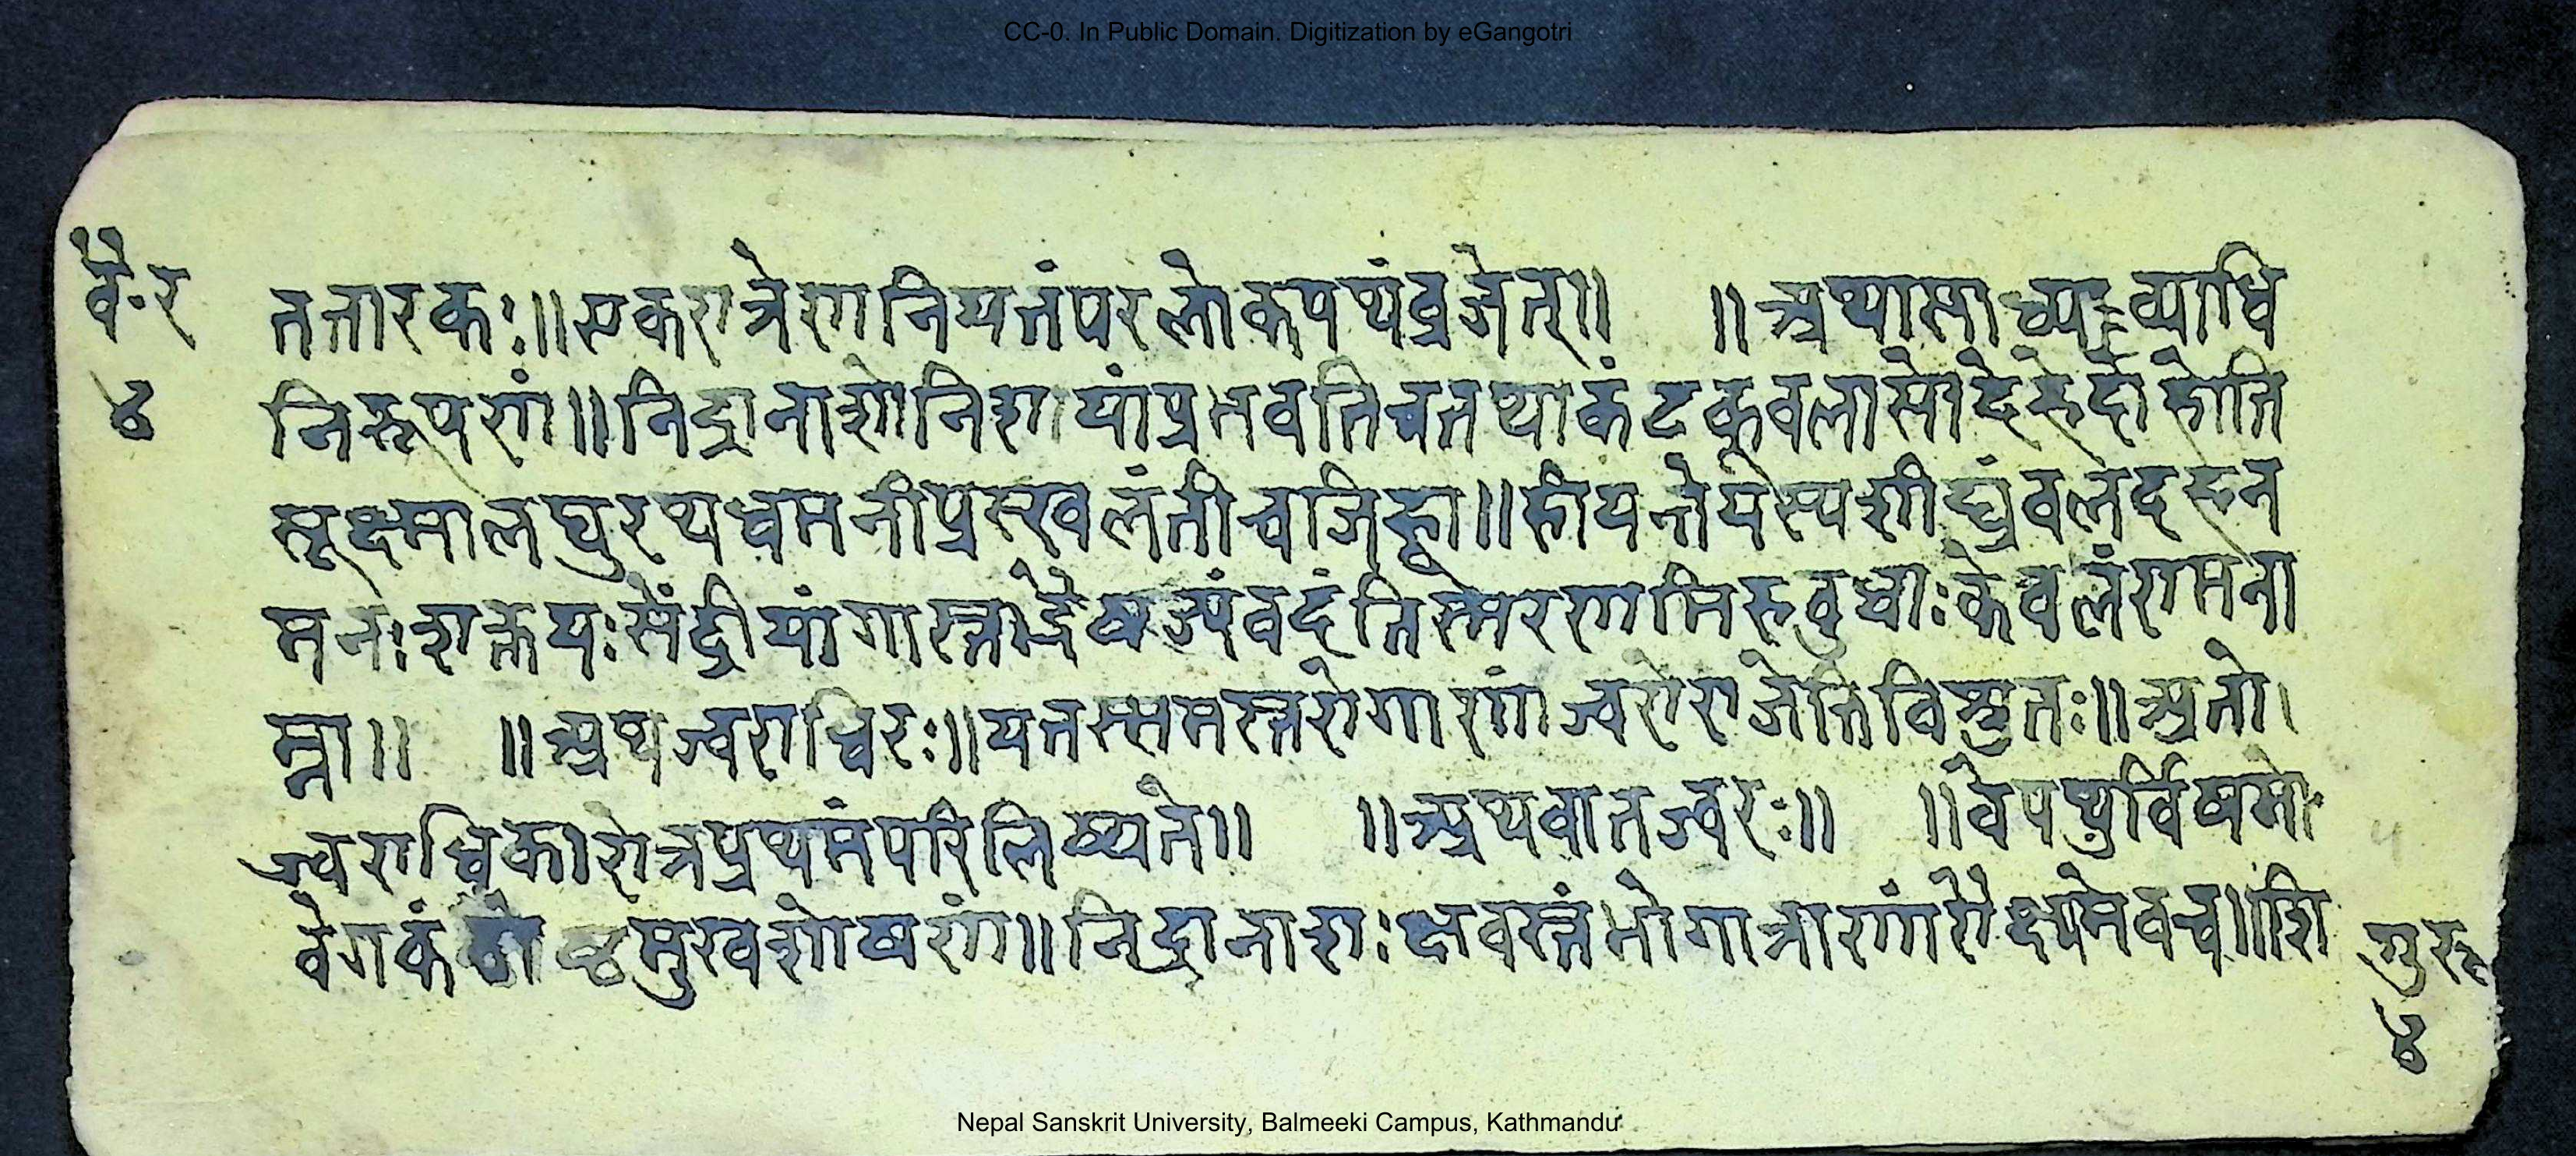 CC-0. In Public Domain. Digitization by eGangotri
वै॰र
४
ततारकः॥एकरात्रेणनियतंपरलोकपथंव्रजेत्॥ ॥अथासाध्यव्याधि
निरूपणं॥निद्रानाशोनिशायांप्रभवतिचतथाकंटकूवलासोदेहेदाहोति
सूक्ष्मालघुरथधमनीप्रस्खलंतीचजिह्वा॥हीयन्तेयस्यशीघ्रंबलदहन
मनःशक्तयःसेंद्रीयांगास्तद्भैषज्यंवदंतिस्मरणमिहबुधाःकेवलंरामना
म्ना॥ ॥अथज्वराधिरः॥यतस्समस्तरोगाणांज्वरोराजेतिविश्रुतः॥अतो
ज्वराधिकारोत्रप्रथमंपरिलिख्यते॥ ॥अथवातज्वरः॥ ॥वेपथुर्विषमो
वेगकंठोष्ठमुखशोषणं॥निद्रानाशःक्षवस्तंभोगात्राणांरौक्ष्यमेवच॥शि
गुरू
४
Nepal Sanskrit University, Balmeeki Campus, Kathmandu